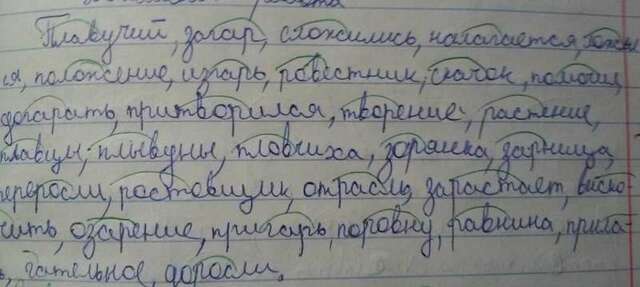 Плавучий, загар, сложились, налагается,
ся, положение, изгарь, ровестник, скачок, помощь
догарать, притворился, творение, растение,
плавцы, плывуны, пловчиха, зорянка, зарница,
переросли, ростовщик, отрасль, зарастает, выско-
чить, озарение, пригарь, поровну, равнина, прила-
гательное, доросли.